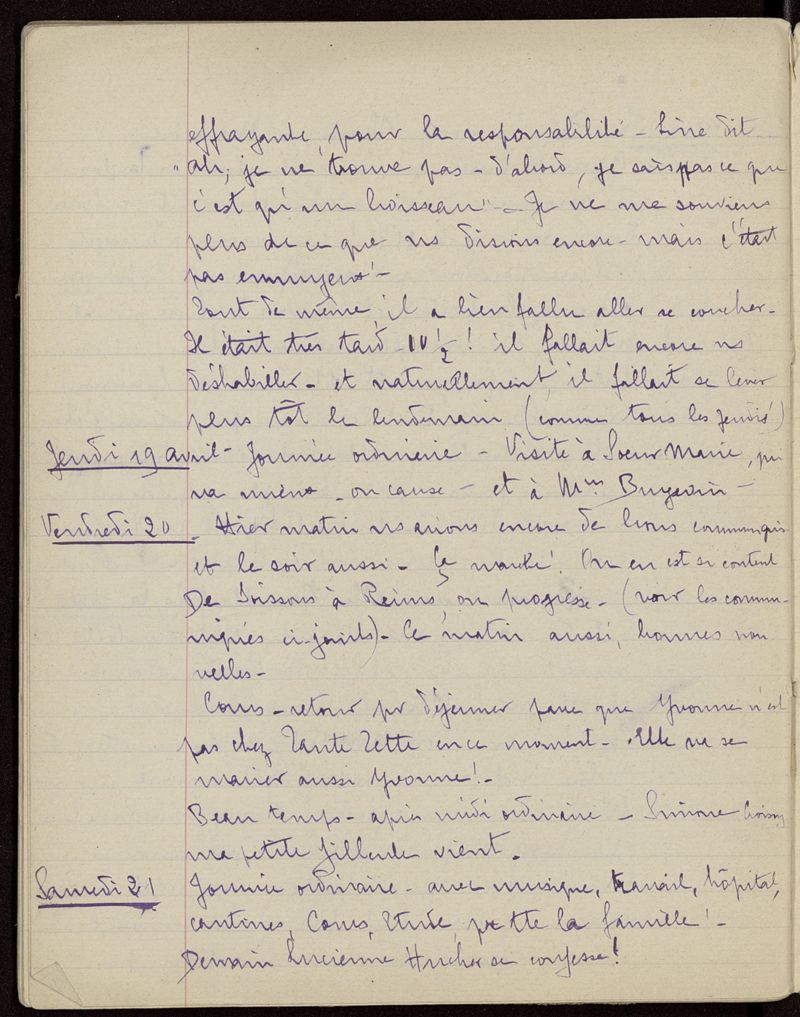 effrayante, pour la responsabilité - Line dit
"Ah, je ne trouve pas - d'abord, je sais pas ce que
c'est qu'un boisseau" - Je ne me souviens
plus de ce que ns disions encore - mais c'était
pas ennuyeux! -
Tout de même il a bien fallu aller se coucher -
Il était très tard - 10 1/2 ! il fallait encore ns
déshabiller - et naturellement, il fallait se lever
plus tôt le lendemain (comme tous les jeudis!)
Jeudi 19 avril - Journée ordinaire - Visite à Soeur Marie, qui
va mieux - on cause - et à Mme
Vendredi 20 - Hier matin ns avions encore de bons communiqués
et le soir aussi - Ça marche! On en est si content
De Soissons à Reims, on progresse - (voir les commu-
niqués ci-joints) - Ce matin aussi, bonnes nou
velles -
Cours - retour pr déjeuner parce que Yvonne n'est
pas chez Tante Tette en ce moment - Elle va se
marier aussi Yvonne! -
Beau temps - après midi ordinaire - Simone
ma petite filleule vient -
Samedi 21 Journée ordinaire - avec musique, travail, hôpital,
cantines, Cours, Etude, pr tte la famille! -
Demain Lucienne Hucher se confesse!